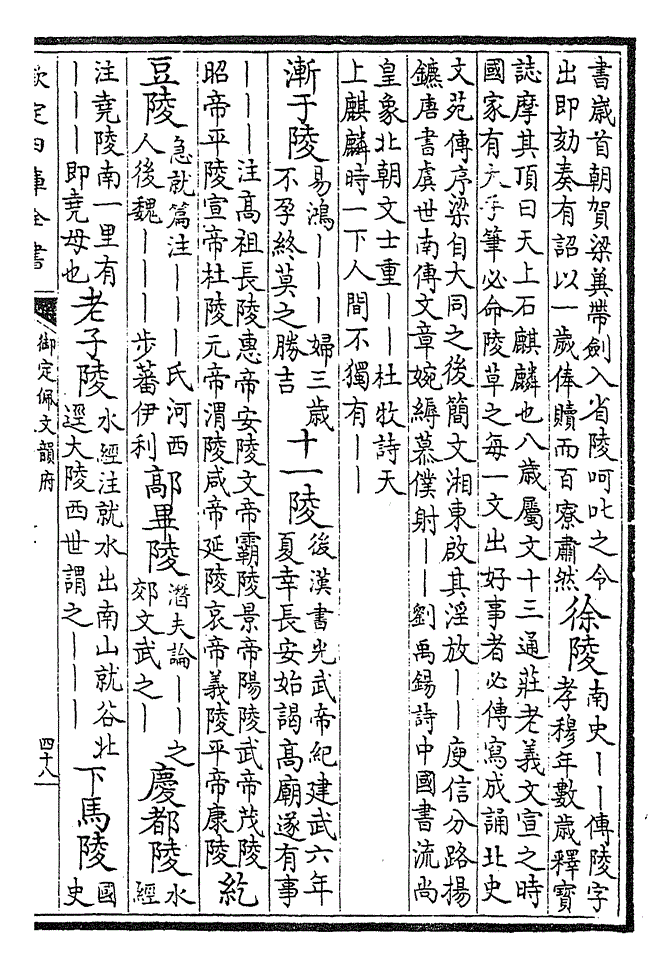 書嵗首朝賀梁兾帶劍入省陵呵叱之令
出即劾奏有詔以一嵗俸贖而百寮肅然
徐陵
南史丨丨傳陵字
孝穆年數嵗釋寳
誌摩其頂曰天上石麒麟也八嵗屬文十三通莊老義文宣之時
國家有大手筆必命陵草之每一文出好事者必傳寫成誦北史
文苑傳序梁自大同之後簡文湘東啟其淫放丨丨庾信分路揚
鑣唐書虞世南傳文章婉縟慕僕射丨丨劉禹錫詩中國書流尚
皇象北朝文士重丨丨杜牧詩天
上麒麟時一下人間不獨有丨丨
漸于陵
易鴻丨丨丨婦三嵗
不孕終莫之勝吉
十一陵
後漢書光武帝紀建武六年
夏幸長安始謁高廟遂有事
丨丨丨注高祖長陵惠帝安陵文帝霸陵景帝陽陵武帝茂陵
昭帝平陵宣帝杜陵元帝渭陵咸帝延陵哀帝義陵平帝康陵
紇
豆陵
急就篇注丨丨丨氏河西
人後魏丨丨丨步蕃伊利
鄗畢陵
潛夫論丨丨之
郊文武之丨
慶都陵
水
經
注堯陵南一里有
丨丨丨即堯母也
老子陵
水經注就水出南山就谷北
逕大陵西世謂之丨丨丨
下馬陵
國
史
欽定四庫全書
御定佩文韻府
四十八